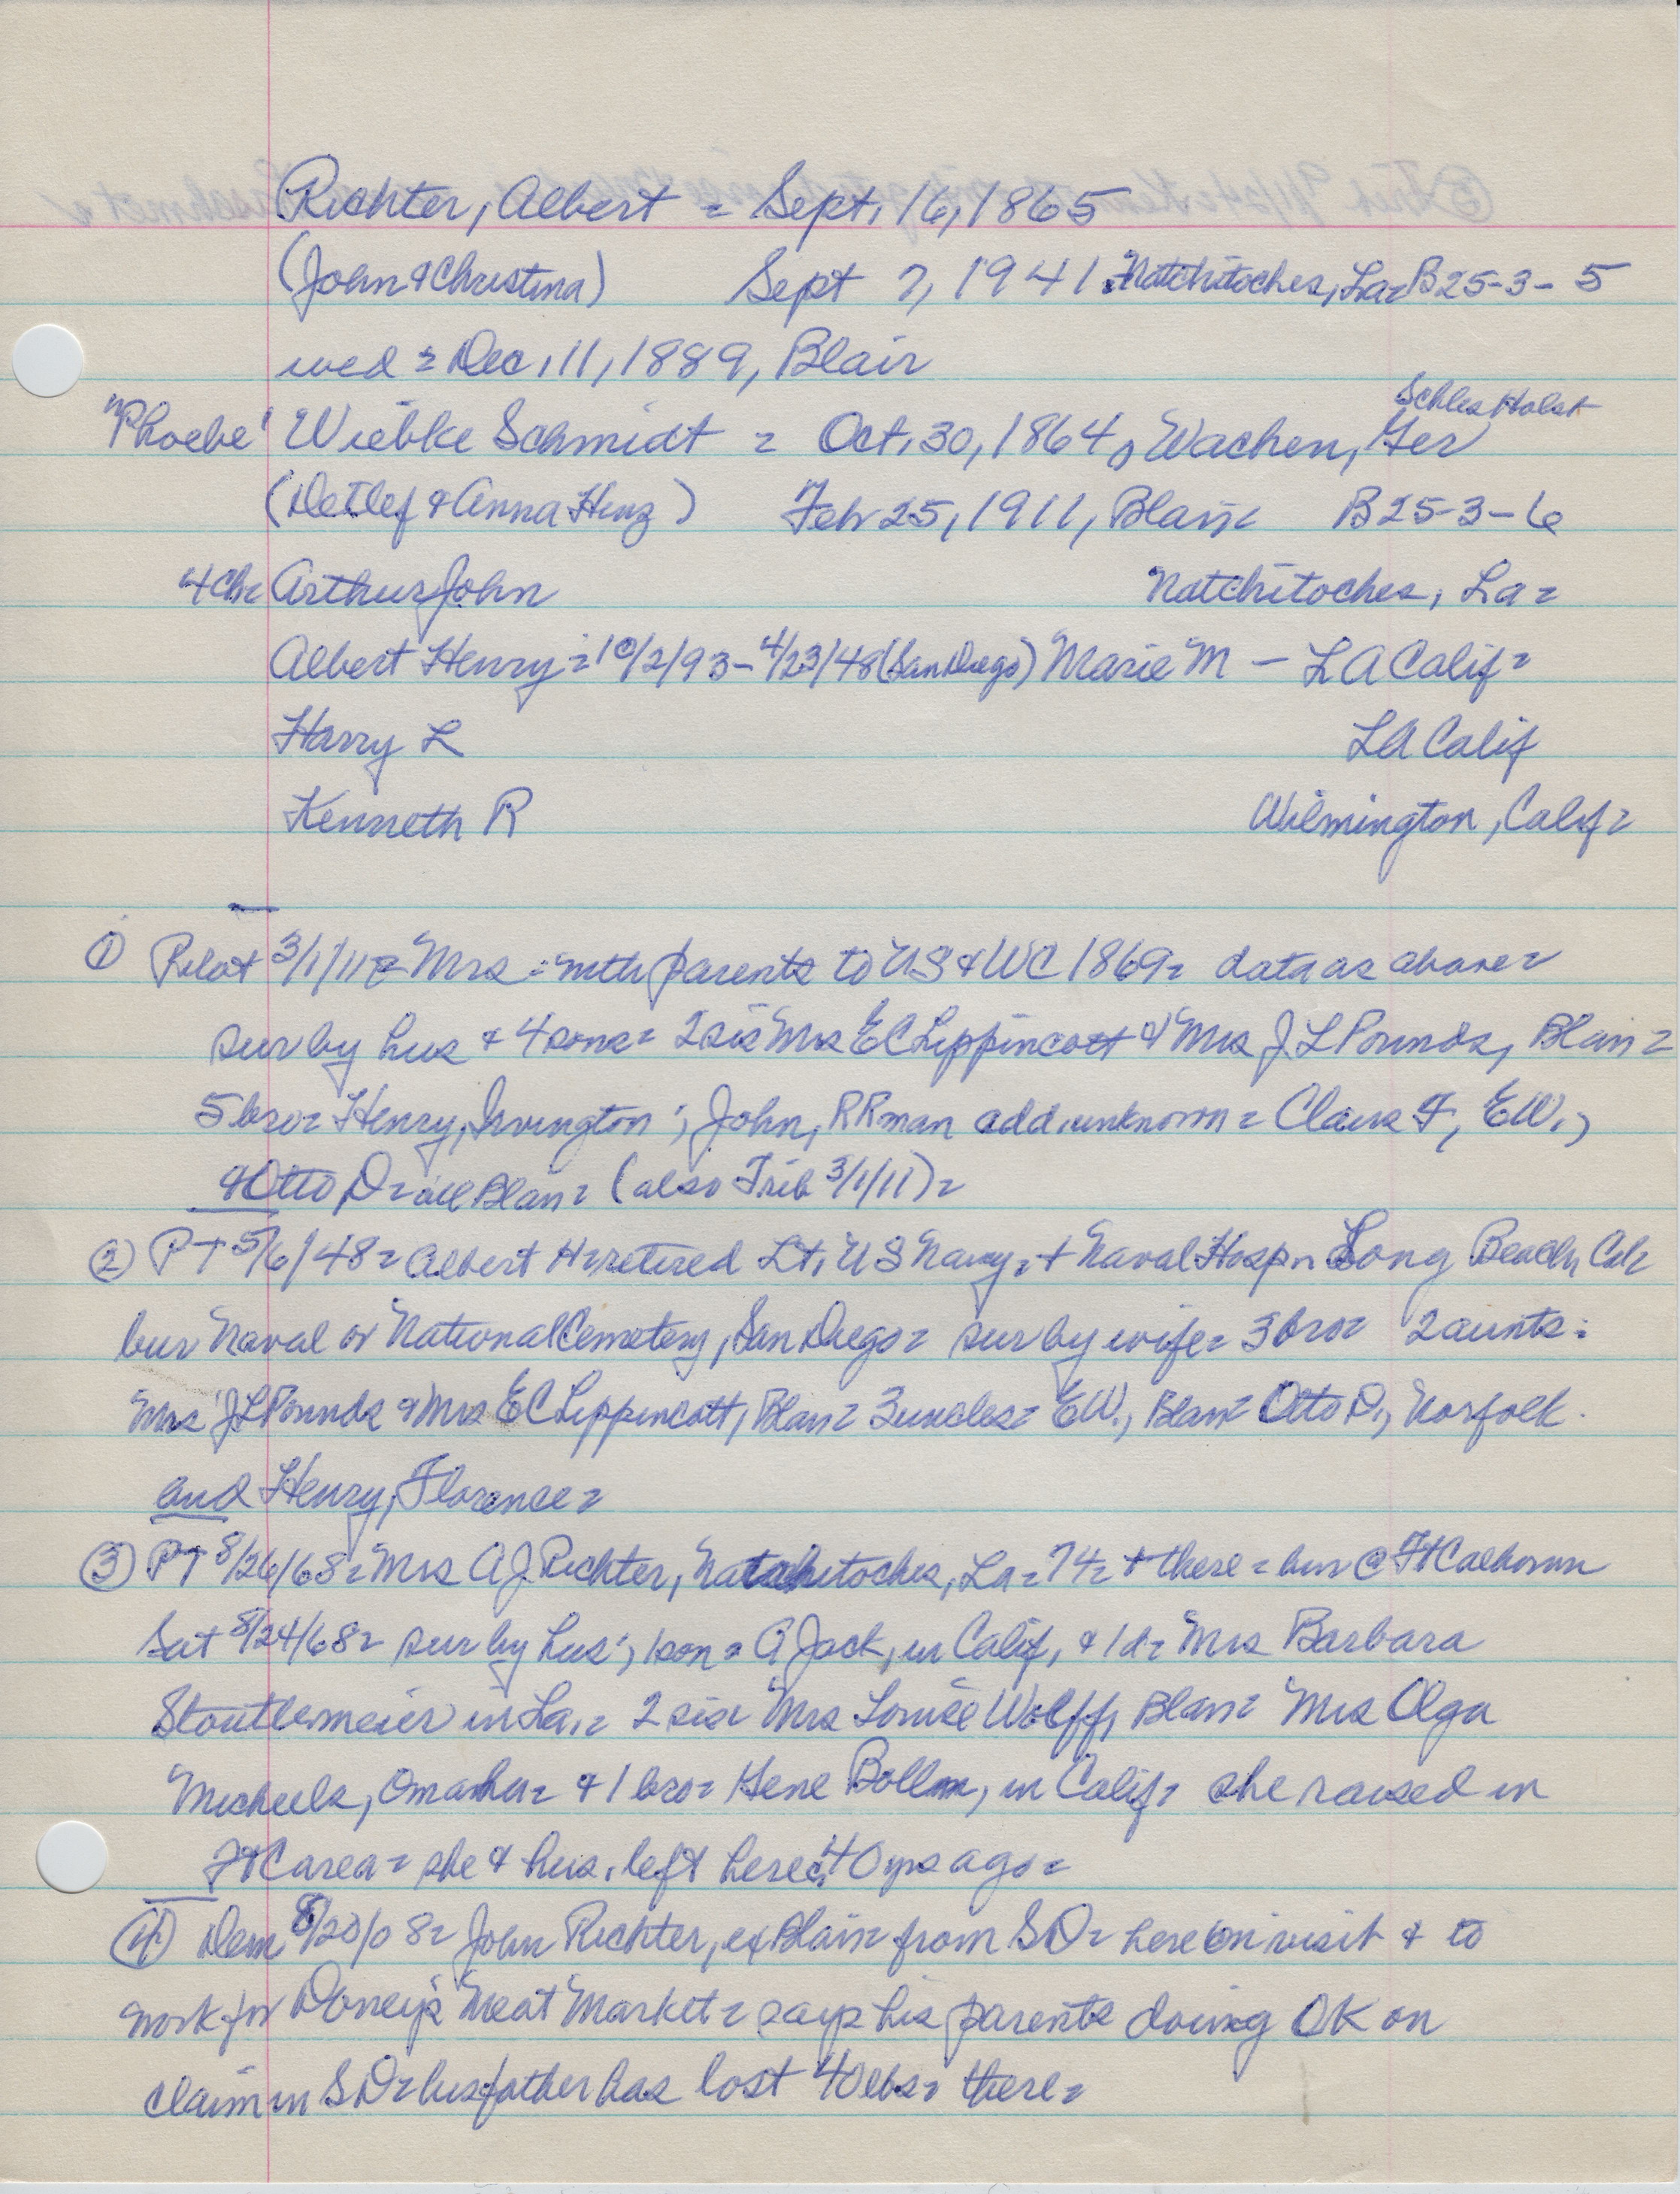 Richter, Albert = Sept. 16, 1865
(John & Christina) Sept 7, 1941 Natchitoches, La= B25-3-5
wed = Dec. 11, 1889, Blair
Schles Holst
"Phoebe" Wiebke Schmidt = Oct. 30, 1864, Wachen, Ger
(Detlef & Anna Hinz) Feb 25, 1911, Blair= B25-3-6
4 ch= Arthur John Natchitoches, La=
Albert Henry = 10/2/93 - 4/23/48 (San Diego) Marie M - LA Calif=
Harry L LA Calif
Kenneth R Wilmington, Calif=
① Pilot 3/1/11= Mrs = with parents to US & WC 1869= data as above=
sur by hus & 4 sons= 2 sis Mrs EC Lippincott & Mrs J. L Pounds, Blair=
5 bro= Henry, Irvington; John, RR man add. unknown= Claus F, EW.,
& Otto D= all Blair= (also Trib 3/1/11)=
② PT 5/6/48= Albert H= retired Lt. US Navy= + Naval Hosp= Long Beach, Cal=
bur Naval or National Cemetery, San Diego= sur by wife= 3 bro= 2 aunts:
Mrs J L Pounds & Mrs EC Lippincott, Blair= 3 uncles= EW., Blair= Otto D., Norfolk.
and Henry, Florence=
③ PT 8/26/68= Mrs A J Richter, Natchitoches, La= 74= + there= bur @ Ft Calhoun
Sat 8/24/68= sur by hus; 1 son= A Jack, in Calif, & 1 d= Mrs Barbara
Stoutlemeier in La.= 2 sis= Mrs Louise Wolff, Blair= Mrs Olga
Micheels, Omaha= & 1 bro= Gene Bolln, in Calif= she raised in
Ft C area= she & hus. left here c. 40 yrs ago=
④ Dem 8/20/08= John Richter, ex Blair= from SD= here on visit & to
work for Doney's Meat Market= says his parents doing OK on
claim in SD= his father has lost 40 lbs= there=